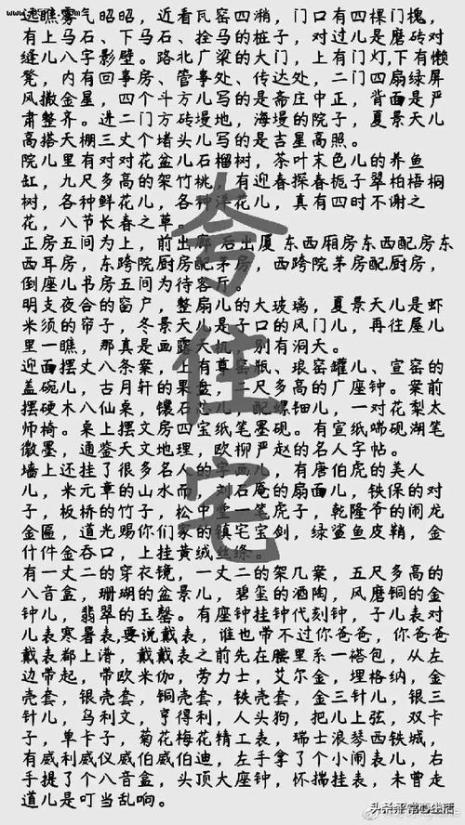 远瞧雾气昭昭，近看瓦窑四潲，门口有四棵门槐，
有上马石、下马石、拴马的桩子，对过儿是磨砖对
缝儿八字影壁。路北广梁的大门，上有门灯,下有懒
凳，内有回事房、管事处、传达处，二门四扇绿屏
风撒金星，四个斗方儿写的是斋庄中正，背面是严
肃整齐。进二门方砖墁地，海墁的院子，夏景天儿
高搭天棚三丈个堵头儿写的是吉星高照。
院儿里有对对花盆儿石榴树，茶叶末色儿的养鱼
缸，九尺多高的架竹桃，有迎春探春栀子翠柏梧桐
树，各种鲜花儿，各种洋花儿，真有四时不谢之
花，八节长春之草
正房五间为上，前出廊 后出厦 东西厢房东西配房东
西耳房，东跨院厨房配茅房，西跨院茅房配厨房，
倒座儿书房五间为待客厅。
明支夜合的窗户，整扇儿的大玻璃，夏景天儿是虾
米须的帘子，冬景天儿是子口的风门儿，再往屋儿
里一瞧，那真是画露天机，别有洞天。
迎面摆丈八条案，上有尊窑瓶、琅窑罐儿、宣窑的
盖碗儿，古月轩的果盘，二尺多高的广座钟。案前
摆硬木八仙桌，镶石心儿，配螺钿儿，一对花梨太
师椅。桌上摆文房四宝纸笔墨砚。有宣纸端砚湖笔
徽墨，通鉴天文地理，欧柳严赵的名人字帖。
墙上还挂了很多名人的字画儿，有唐伯虎的美人
儿，米元章的山水而，刘石庵的扇面儿，铁保的对
子，板桥的竹子，松中堂一笔虎子，乾隆爷的闹龙
金匾，道光赐你们家的镇宅宝剑，绿鲨鱼皮鞘，金
什件金吞口，上挂黄绒丝绦。
有一丈二的穿衣镜，一丈二的架几案，五尺多高的
八音盒，珊瑚的盆景儿，碧玺的酒陶，风磨铜的金
钟儿，翡翠的玉磬。有座钟挂钟代刻钟，子儿表对
儿表寒暑表,要说戴表，谁也带不过你爸爸，你爸爸
戴表都上滑，戴戴表之前先在腰里系一褡包，从左
边带起，带欧米伽，劳力士，艾尔金，埋格纳，金
壳套，银壳套，铜壳套，铁壳套，金三针儿，银三
针儿，乌利文，亨得利，人头狗，把儿上弦，双卡
子，单卡子，菊花梅花精工表，瑞士浪琴西铁城，
有威利威仪威伯威伯迪，左手拿了个小闹表儿，右
手提了个八音盒，头顶大座钟，怀揣挂表，未曾走
道儿是叮当乱响。
夸住宅